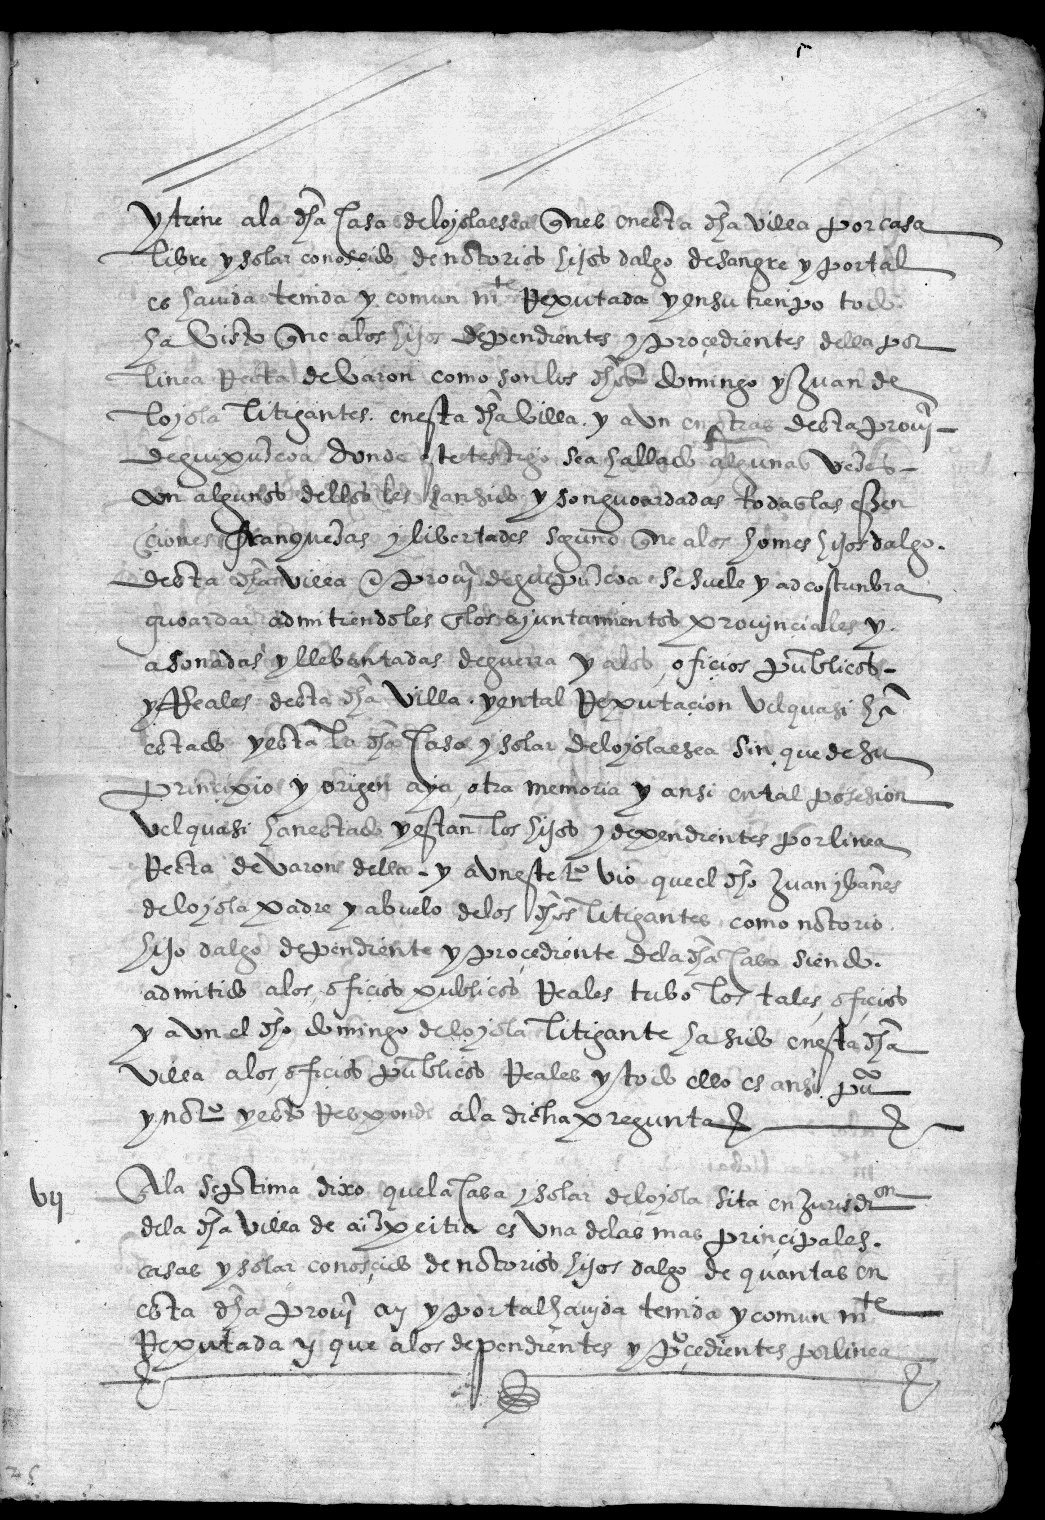 y tiene a la dha casa de loyola esea ques en esta dha villa por casa
libre y solar conoscido de notorios hijos dalgo de sangre y por tal
es havida tenida y comun mte Reputada y en su tienpo todo
ha visto que a los hijos dependientes y procedientes della por
linea Recta de varon como son los dhos domingo y Juan de
loyola litigantes. en esta dha villa. y a un en otras desta provi
de guipuzcoa donde este testigo sea hallado algunas vezes
con algunos dellos les han sido y son guoardadas todas las essen
ciones franquezas y libertades segund que a los homes hijos dalgo.
desta dha villa e provi de guipuzcoa se suele y adcostunbra
guoardar admitiendoles a los ajuntamientos provinciales y.
asonadas y llevantadas de guerra y a los oficios publicos
y Reales desta dha villa. y en tal Reputacion vel quasi ha
estado y esta la dha casa y solar de loyola esea sin que de su
principio y origen aya otra memoria y ansi en tal posesion
vel quasi han estado y estan los hijos y dependientes por linea
Recta de varon della - y a un este to vio que el dho Juan ybañes
de loyola padre y abuelo de los dhos litigantes como notorio
hijo dalgo dependiente y procediente de la dha casa siendo.
admitido a los oficios publicos Reales tubo los tales oficios
y a un el dho domingo de loyola litigante ha sido en esta dha
villa a los oficios publicos Reales y todo ello es ansi puo
y noto y esto Responde a la dicha pregunta
vij
A la septima dixo que la casa y solar de loyola sita en Jurisdion
de la dha villa de aizpeitia es una de las mas principales.
casas y solar conoscido de notorios hijos dalgo de quantas en
esta dha provi ay y por tal havida tenida y comun mte
Reputada y que a los dependientes y procedientes por linea